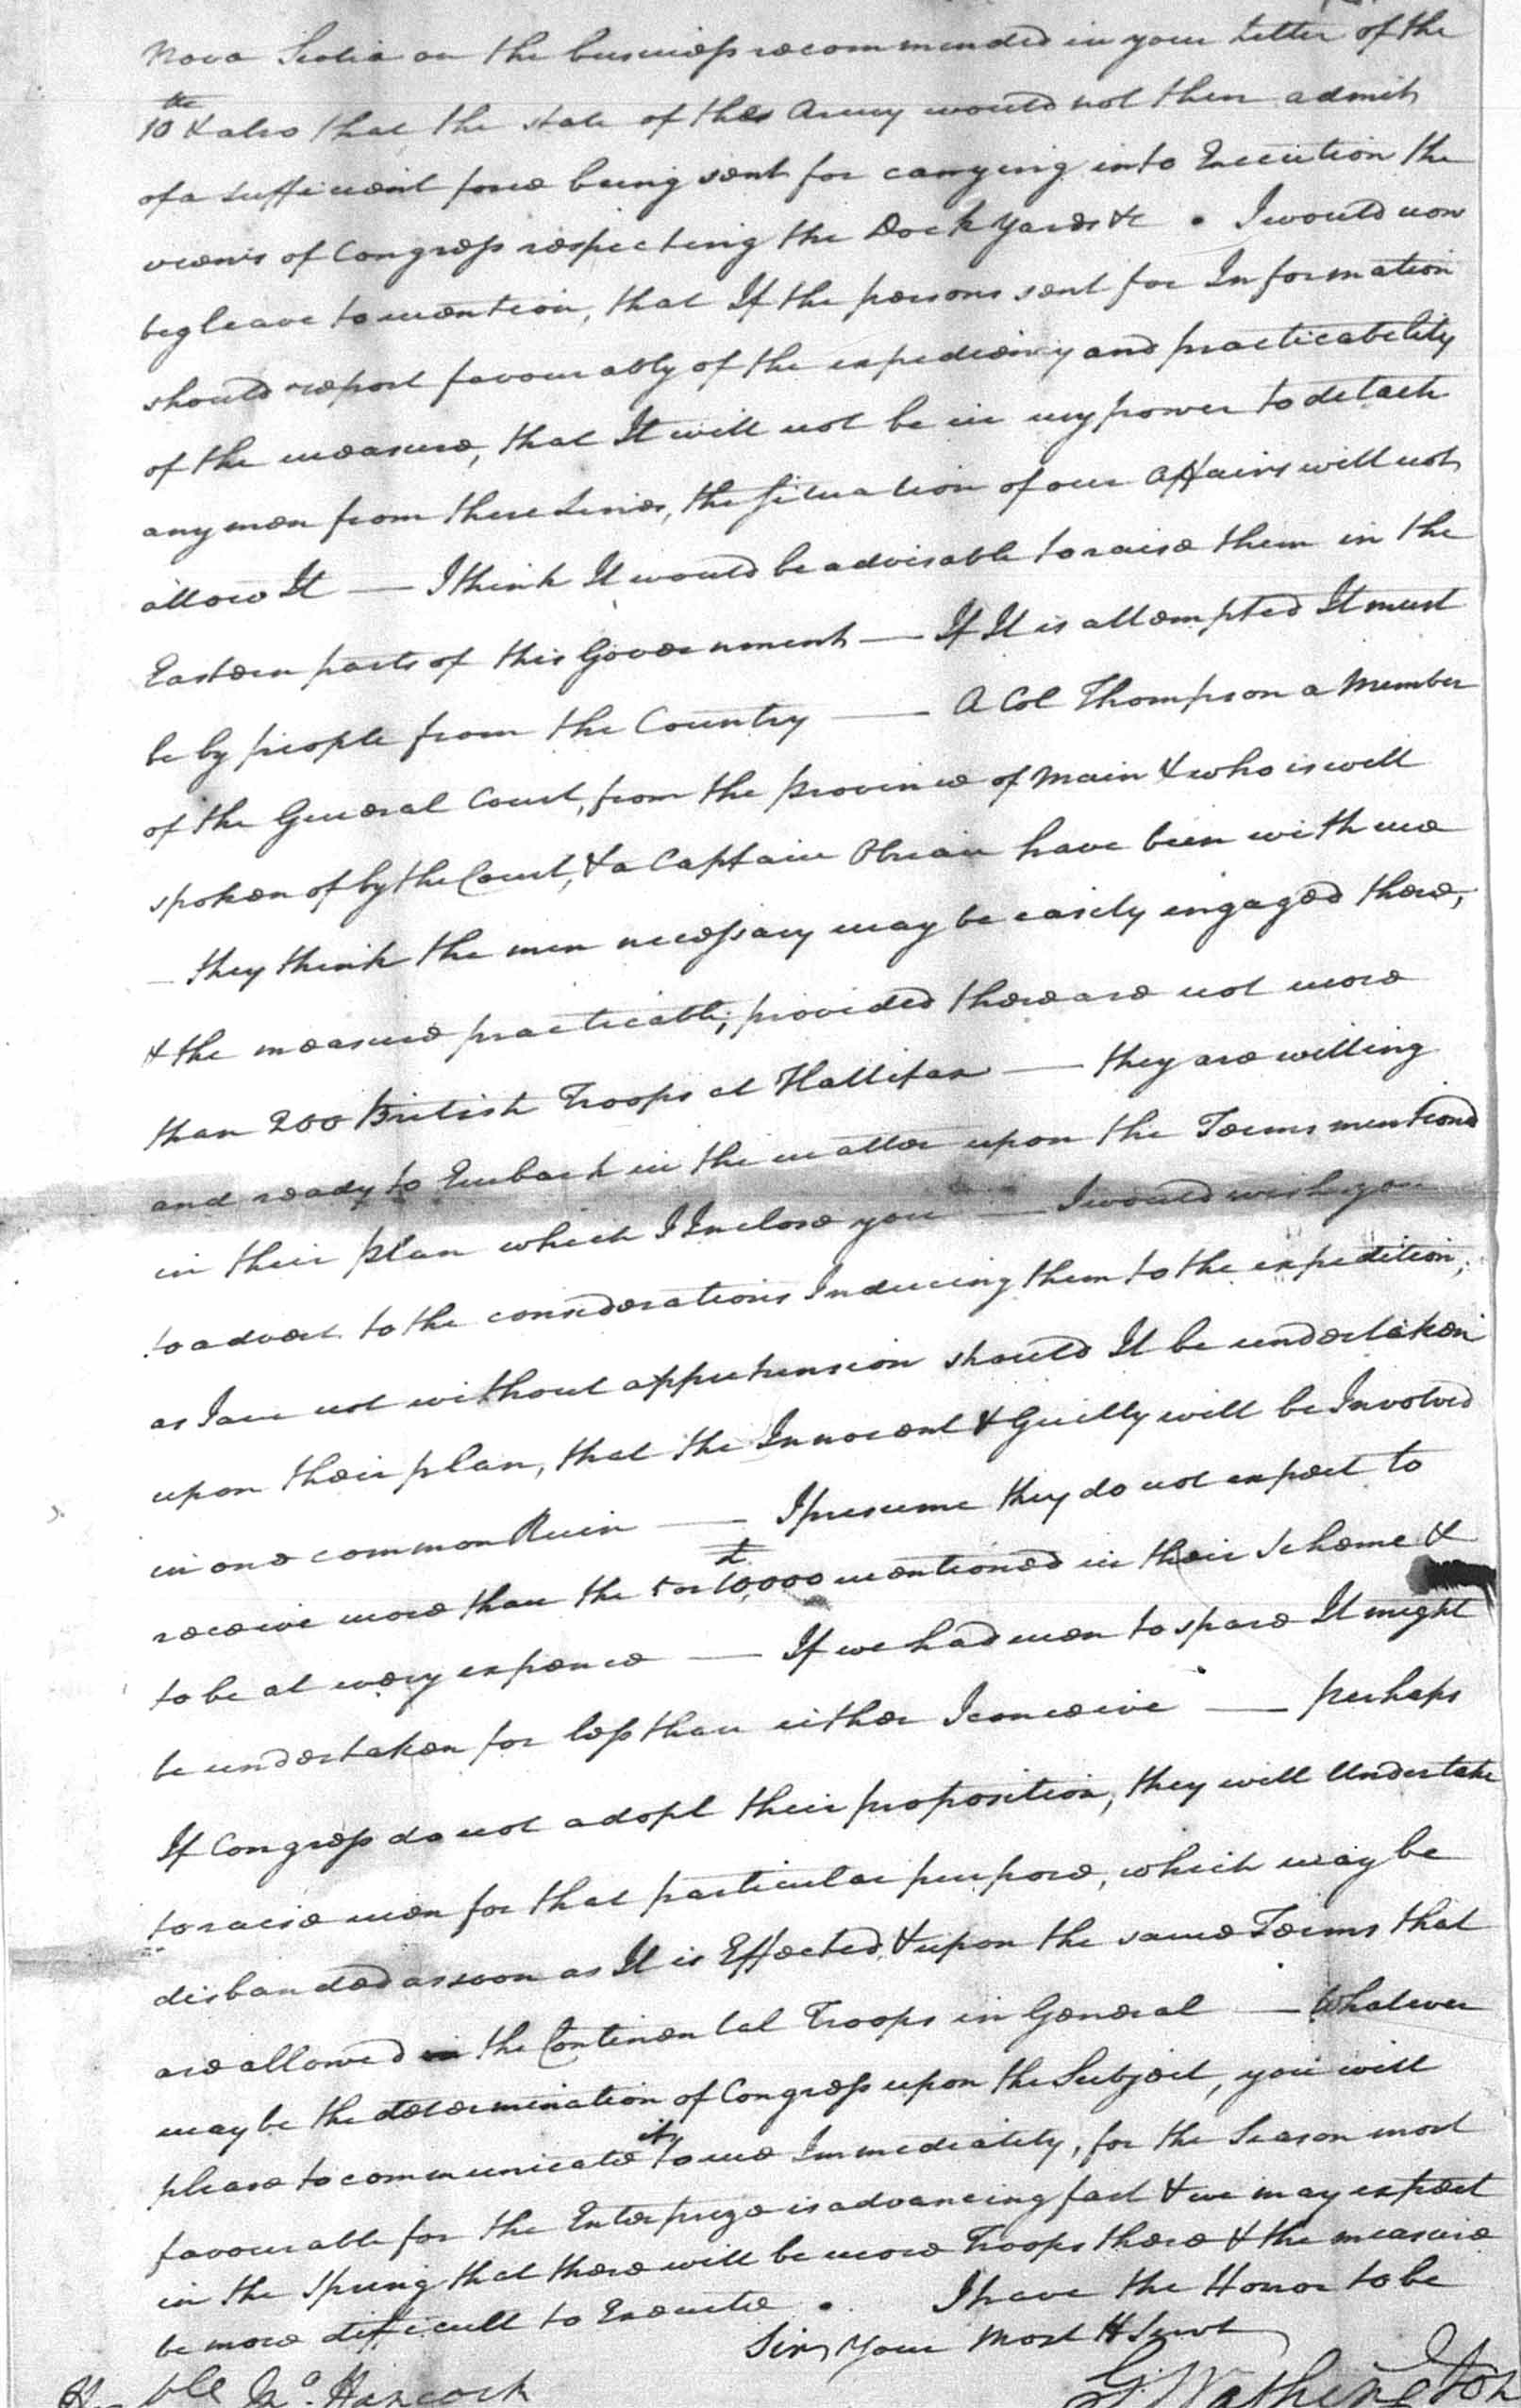 Nova Scotia on the business recommended in your Letter of the
10th & also that the state of the Army would not then admit
of a sufficient force being sent for carrying into Execution the
views of Congress respecting the Dock Yards &c. I would now
beg leave to mention, that If the persons sent for Information
should report favourably of the expediency and practicability
of the measure, that It will not be in my power to detach
any men from these Lines, the situation of our Affairs will not
allow It — I think It would be advisable to raise them in the
Eastern parts of this Government — If It is attempted It must
be by people from the Country — A Col Thompson a Member
of the General Court, from the province of Main & who is well
spoken of by the Court, & a Captain Obrian have been with me
— they think the men necessary may be easily engaged there,
& the measure practicable, provided there are not more
than 200 British Troops at Hallifax — they are willing
and ready to Embark in the matter upon the Terms mentiond
in their plan which I Inclose you — I would wish you
to advert to the considerations Inducing them to the expedition,
as I am not without apprehension should It be undertaken
upon their plan, that the Innocent & Guilty will be Involved
in one common Ruin — I presume they do not expect to
receive more than the 5 or £10,000 mentioned in their scheme &
to be at every expence — If we had men to spare It might
be undertaken for less than either I conceive — perhaps
If Congress do not adopt their proposition, they will Undertake
to raise men for that particular purpose, which may be
disbanded as soon as It is Effected, & upon the same Terms that
are allowed the Continental Troops in General — Whatever
may be the determination of Congress upon the Subject, you will
please to communicate it to me Immediately, for the Season most
favourable for the Enterprize is advancing fast & we may expect
in the Spring that there will be more Troops there & the measure
be more difficult to Execute. I have the Honor to be
Sir, Your Most H Servt
G. Washington
Honble Jno. Hancock